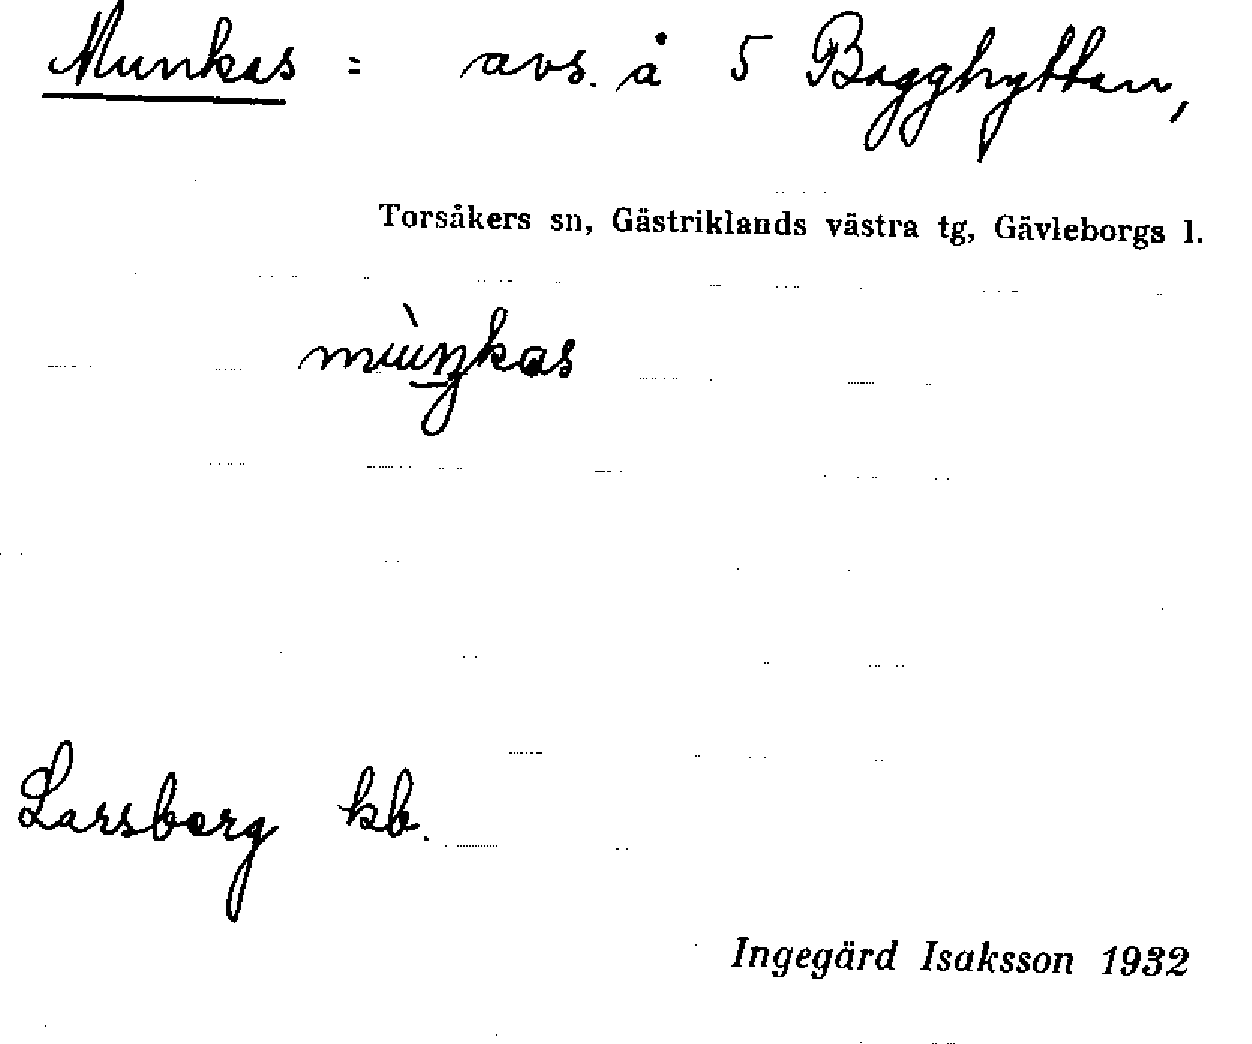 Munkas = avs. å 5 Bagghyttan,
Torsåkers sn, Gästriklands västra tg, Gävleborgs l.
mùŋkas
Larsberg kb.
Ingegärd Isaksson 1932